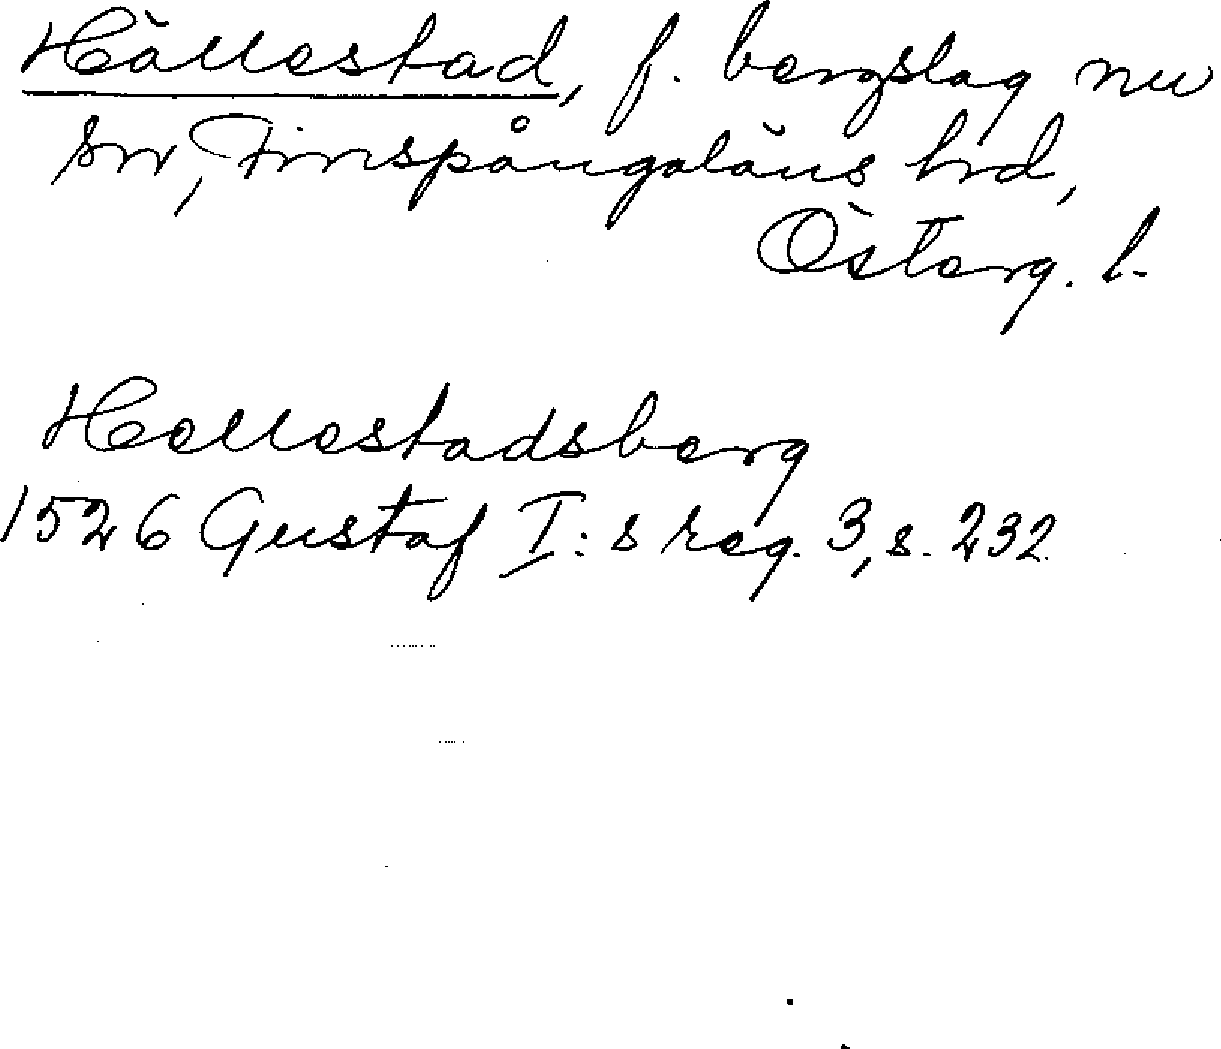 Hällestad, f. bergslag nu
sn, Finspångaläns hrd,
Österg. l.
Hellestadsberg
1526 Gustaf I:s reg. 3, s. 232